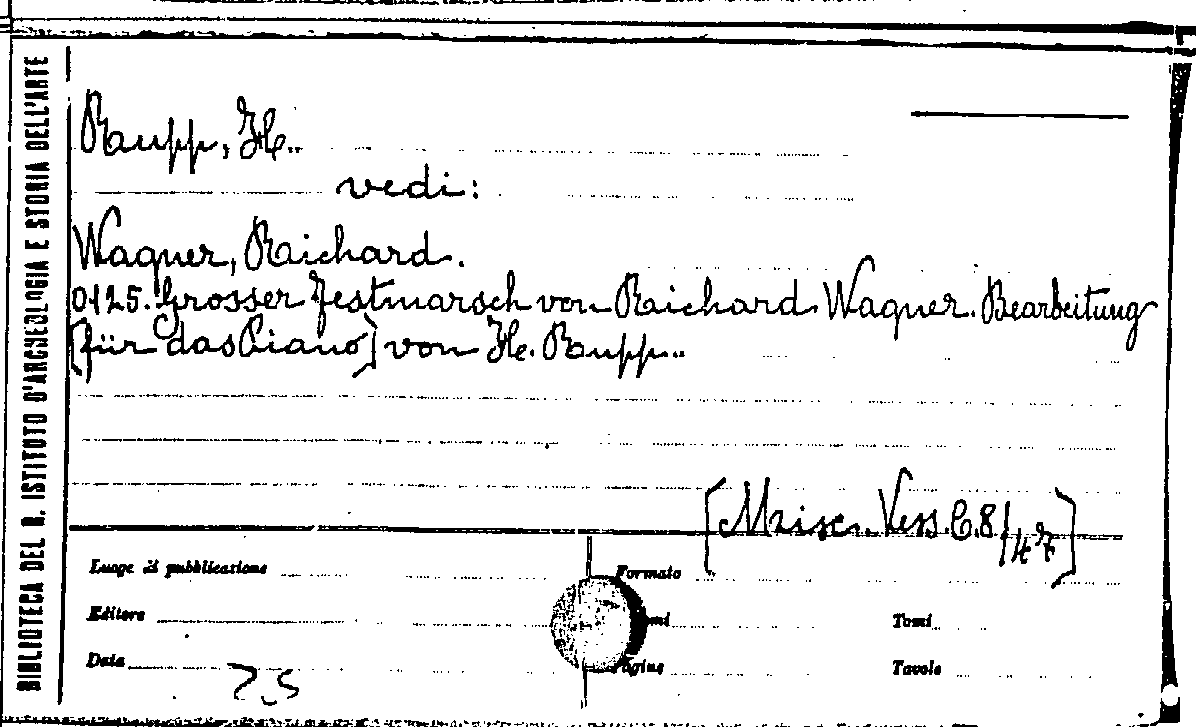 BIBLIOTECA DEL R. ISTITUTO D'ARCHEOLOGIA E STORIA DELL'ARTE
Rupp, H..
vedi:
Wagner, Richard.
0125. Grosser Festmarsch von Richard Wagner. Bearbeitung
[für das Piano] von H. Rupp..
[Misc. Vess. C. 8/47]
Luogo di pubblicazione
Formato
Editore
Tomi
Data
Pagine
Tavole